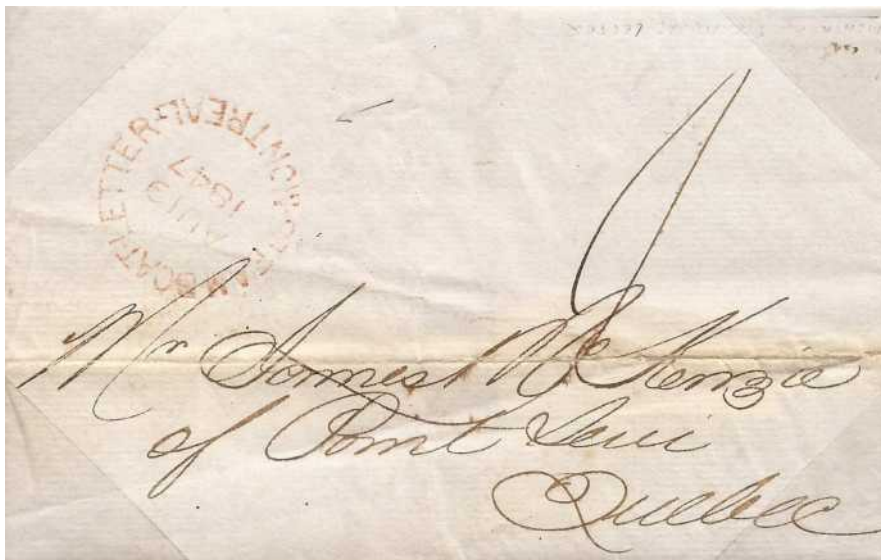 STEAM BOAT LETTER - MONTREAL
1847
Mr James McKenzie
of Point Levi
Quebec